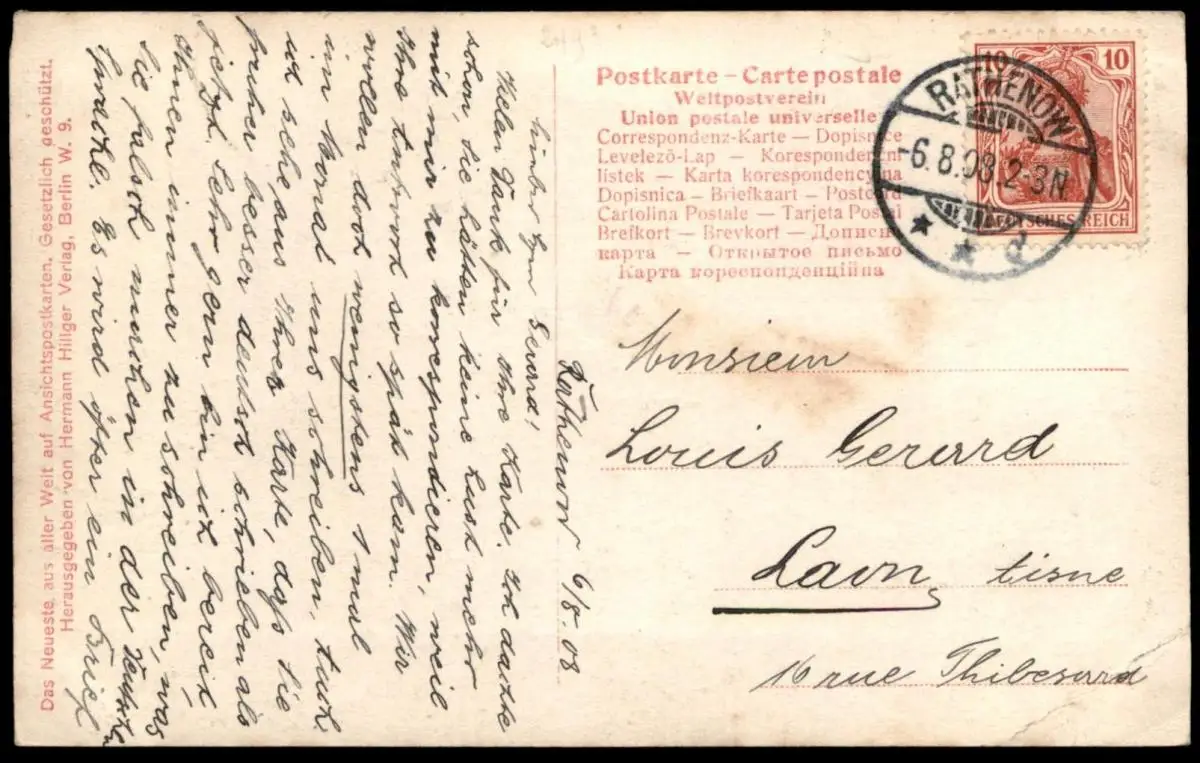 Das Neueste aus aller Welt auf Ansichtspostkarten. Gesetzlich geschützt.
Herausgegeben von Hermann Hillger Verlag, Berlin W. 9.
Rathenow 6/8. 08
Lieber Herr Gerard!
Vielen Dank für Ihre Karte. Ich dachte
schon, Sie hätten keine Lust mehr
mit mir zu korrespondieren, weil
Ihre Antwort so spät kam. Wir
wollen doch wenigstens 1 mal
im Monat uns schreiben. Auch
ich sehe aus Ihrer Karte, dass Sie
früher besser deutsch schrieben als
jetzt. Sehr gern bin ich bereit,
Ihnen immer zu schreiben, was
Sie falsch machen in der
Ihrigen. Es wird öfter ein Brief
Postkarte – Carte postale
Weltpostverein
Union postale universelle
Correspondenz-Karte — Dopisnice
Levelező-Lap — Korespondenční
listek — Karta korespondencyjna
Dopisnica — Briefkaart — Postcard
Cartolina Postale — Tarjeta Postal
Brefkort — Brevkort — Дописна
карта — Открытое письмо
Карта кореспонденційна
10 10
DEUTSCHES REICH
RATHENOW
-6.8.08.2-3N
* * d
Monsieur
Louis Gerard
Laon, Aisne
16 rue Thibesard